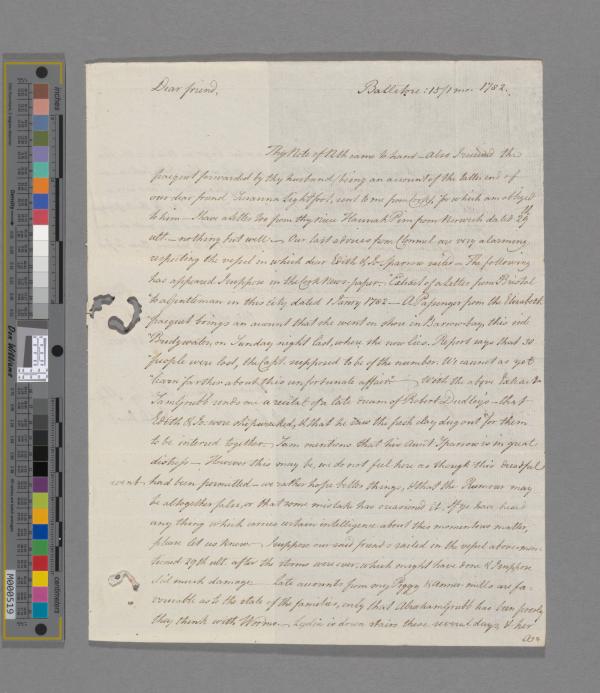 Dear friend,
Ballitore: 15/1 mo. 1782.
Thy Note of 12th came to hand – Also I received the
pacquet forwarded by thy husband, being an account of the latter end of
our dear friend Susanna Lightfoot, sent to me from Cork, for which am obliged
to him – I have a letter too from thy niece Hannah Pim from Norwich dated 29th
ult. – nothing but well. – Our last advices from Clonmel are very alarming,
respecting the vessel in which dear Edith & Jo: Sparrow sailed – The following
has appeared I suppose in the Cork News-paper. "Extract of a letter from Bristol
to a Gentleman in this city, dated 1 Janry 1782 – A Passenger from the Elizabeth
pacquet brings an account that she went on shore in Barrow-bay, this side
Bridgwater, on Sunday night last, where she now lies. Report says that 30
people were lost, the Capt. supposed to be of the number. We cannot as yet
learn farther about this unfortunate affair" – With the above Extract
Sam Grubb sends me a recital of a late dream of Robert Dudley's – that
Edith & Jo: were shipwrecked, & that he saw the pits dug out for them
to be interred together – Sam mentions that his Aunt Sparrow is in great
distress – However this may be, we do not feel here as though this dreadful
event had been permitted – we rather hope better things, & that the Rumour may
be altogether false, or that some mistake has occasioned it. If ye have heard
any thing which carries certain intelligence about this momentous matter,
please let us know – I suppose our said friends sailed in the vessel above-men-
tioned 29th ult. after the storms were over, which might have done & I suppose
did much damage – late accounts from Peggy & Anner-mills are fa-
vourable as to the state of the families, only that Abraham Grubb has been poorly
they think with Worms – Lydia is down stairs these several days, & her
inches
centimeters
Don Williams
M000519